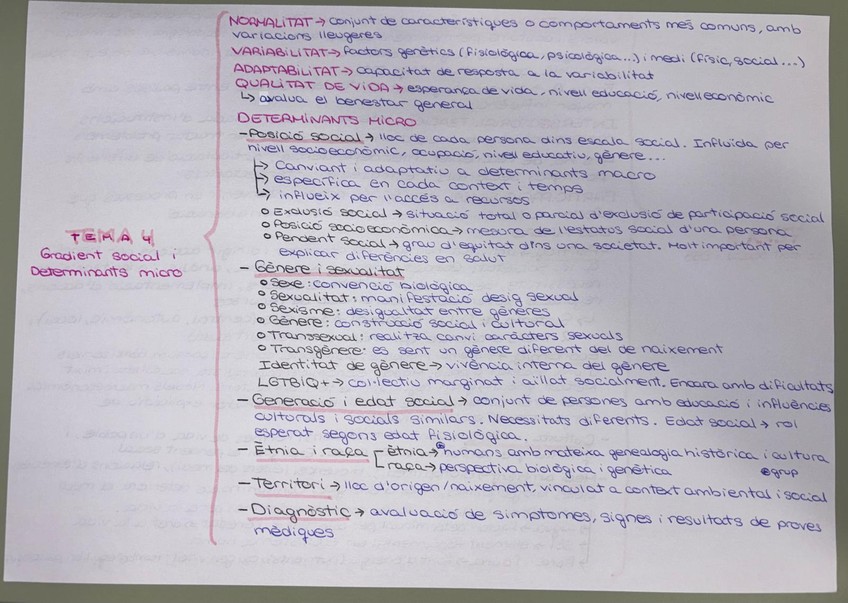 TEMA 4
Gradient social i
Determinants micro
NORMALITAT → conjunt de característiques o comportaments més comuns, amb
variacions lleugeres
VARIABILITAT → factors genètics (fisiològica, psicològica...) i medi (físic, social...)
ADAPTABILITAT → capacitat de resposta a la variabilitat
QUALITAT DE VIDA → esperança de vida, nivell educació, nivell econòmic
↳ avalua el benestar general
DETERMINANTS MICRO
- Posició social → lloc de cada persona dins escala social. Influïda per
nivell socioeconòmic, ocupació, nivell educatiu, gènere...
↳ Canviant i adaptatiu a determinants macro
↳ específica en cada context i temps
↳ influeix per l'accés a recursos
○ Exclusió social → situació total o parcial d'exclusió de participació social
○ Posició socioeconòmica → mesura de l'estatus social d'una persona
○ Pendent social → grau d'equitat dins una societat. Molt important per
explicar diferències en salut
- Gènere i sexualitat
○ Sexe: convenció biològica
○ Sexualitat: manifestació desig sexual
○ Sexisme: desigualtat entre gèneres
○ Gènere: construcció social i cultural
○ Transsexual: realitza canvi caràcters sexuals
○ Transgènere: es sent un gènere diferent del de naixement
Identitat de gènere → vivència interna del gènere
LGTBIQ+ → col·lectiu marginat i aïllat socialment. Encara amb dificultats
- Generació i edat social → conjunt de persones amb educació i influències
culturals i socials similars. Necessitats diferents. Edat social → rol
esperat segons edat fisiològica.
- Ètnia i raça ètnia → humans amb mateixa genealogia històrica i cultura
raça → perspectiva biològica i genètica grup
- Territori → lloc d'origen/naixement, vinculat a context ambiental i social
- Diagnòstic → avaluació de simptomes, signes i resultats de proves
mèdiques